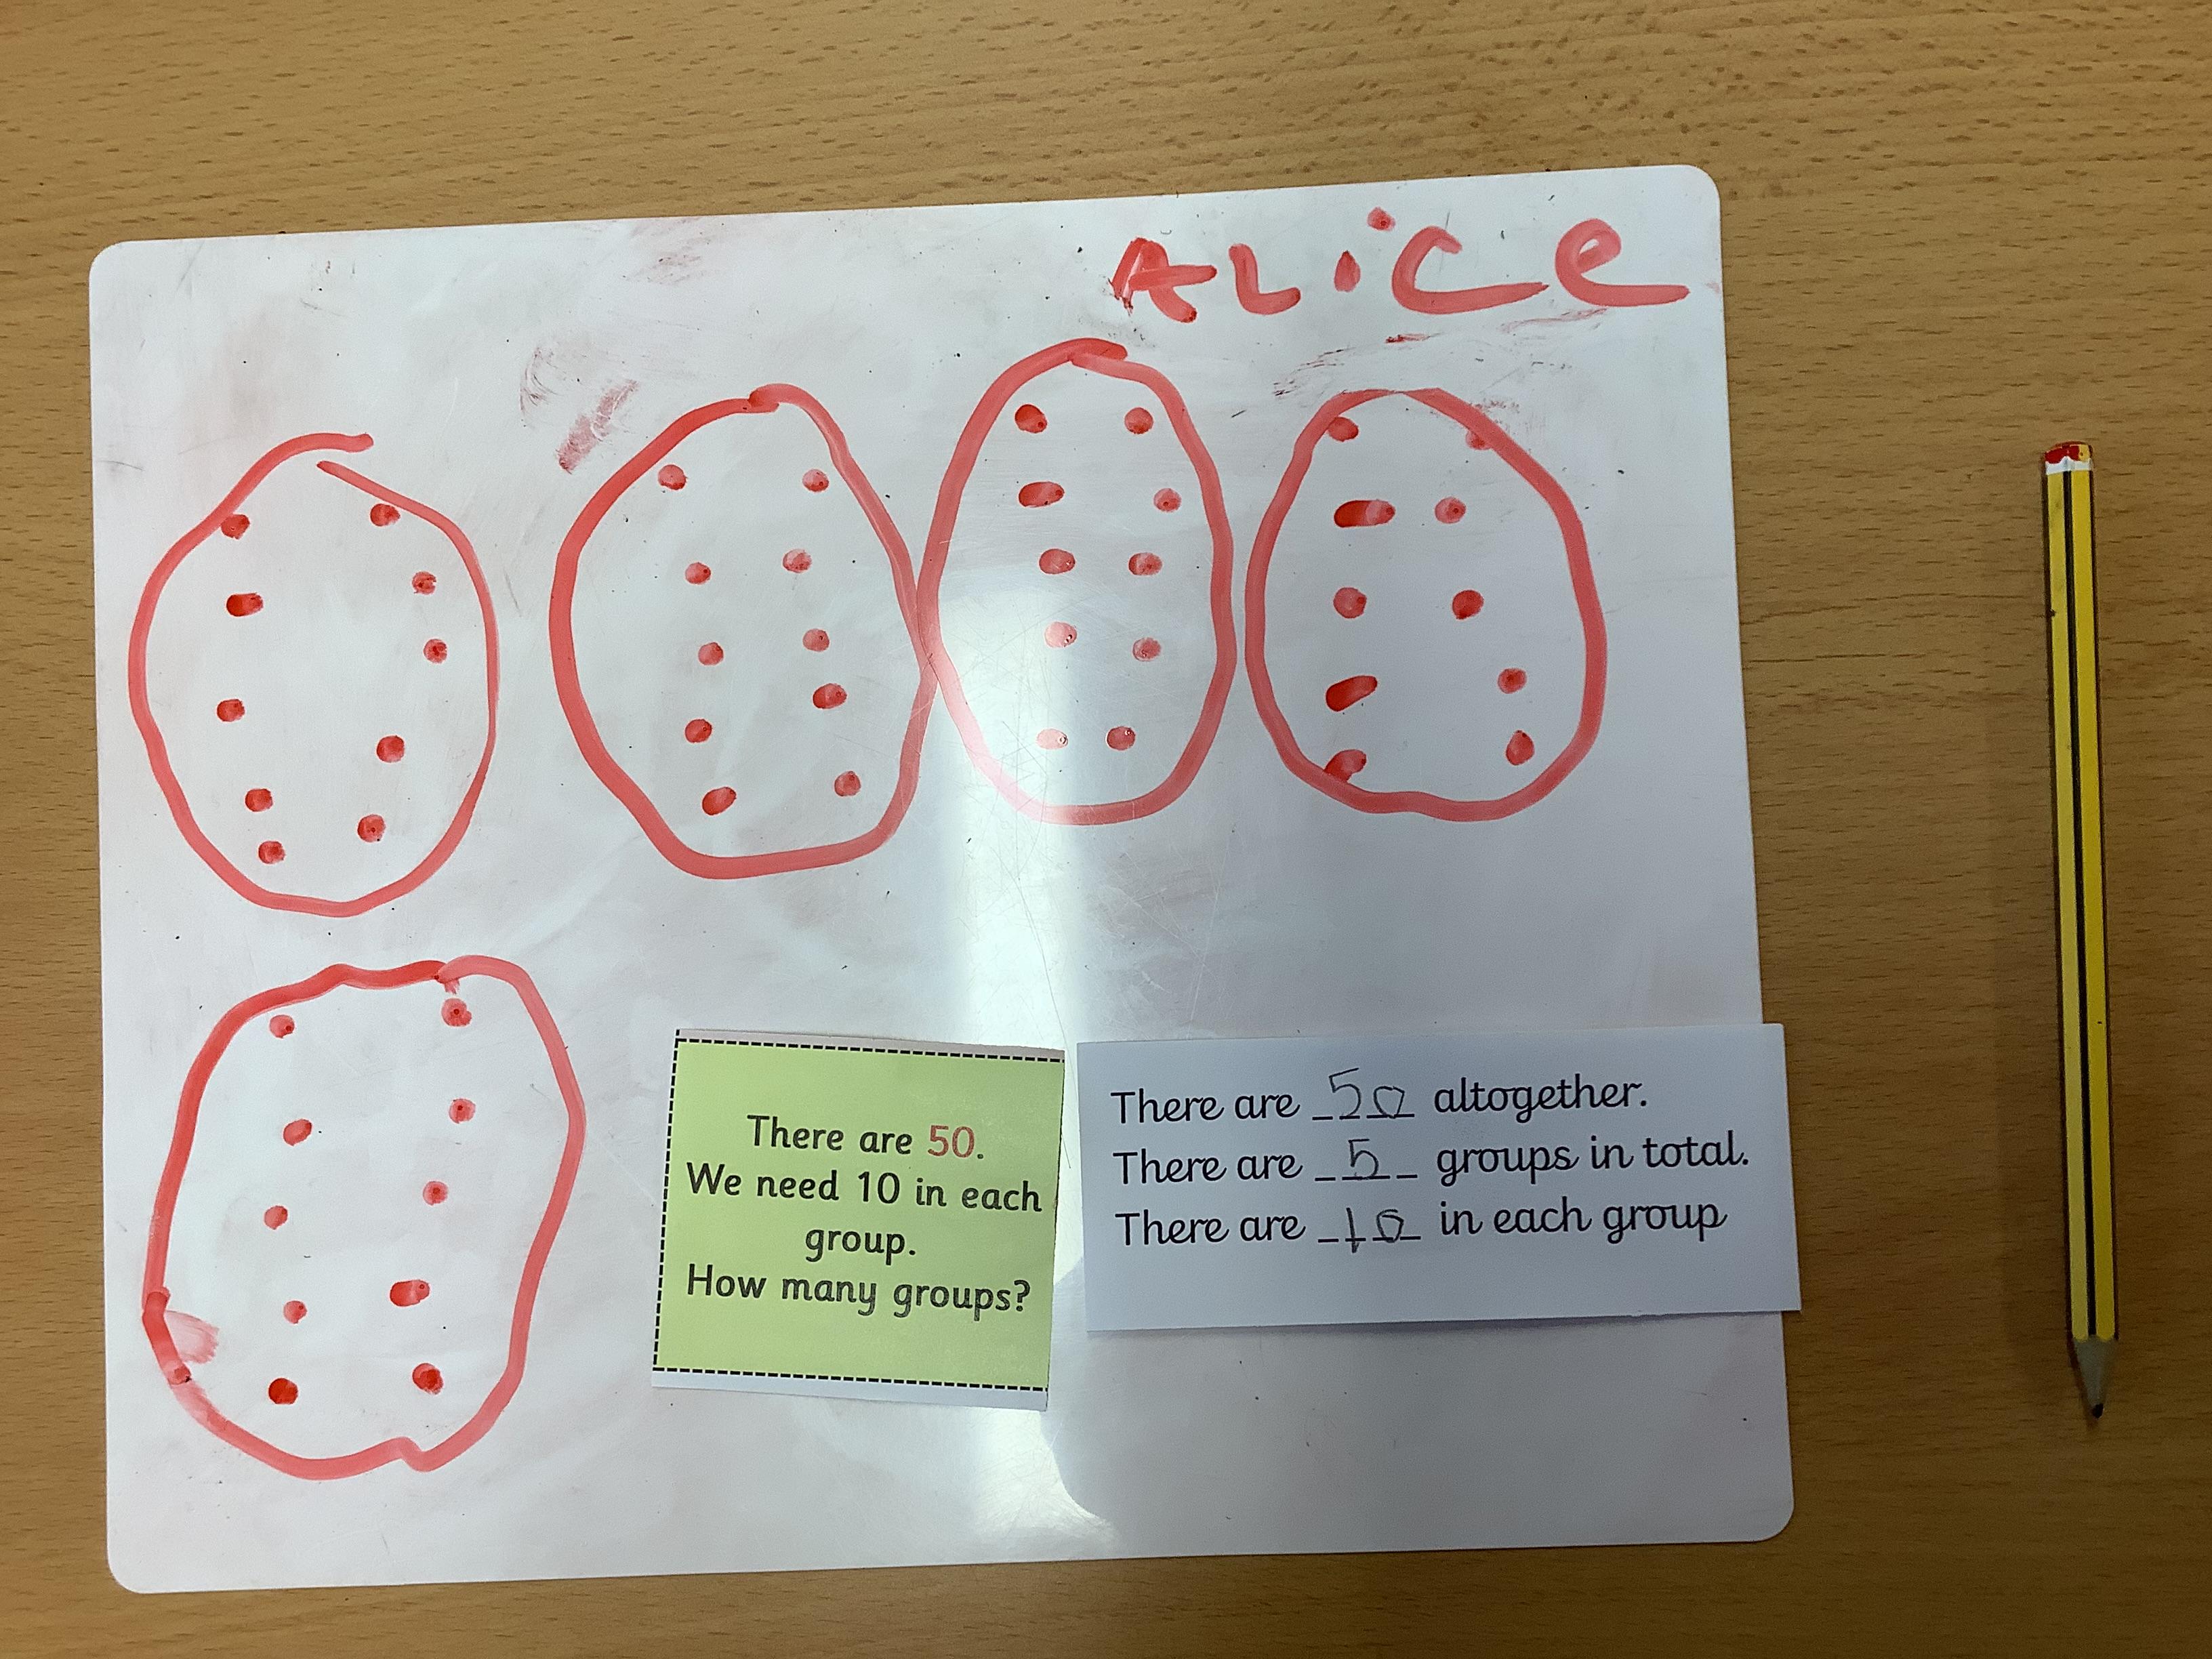 ALiCe
There are 50.
We need 10 in each
group.
How many groups?
There are 50 altogether.
There are 5 groups in total.
There are 10 in each group